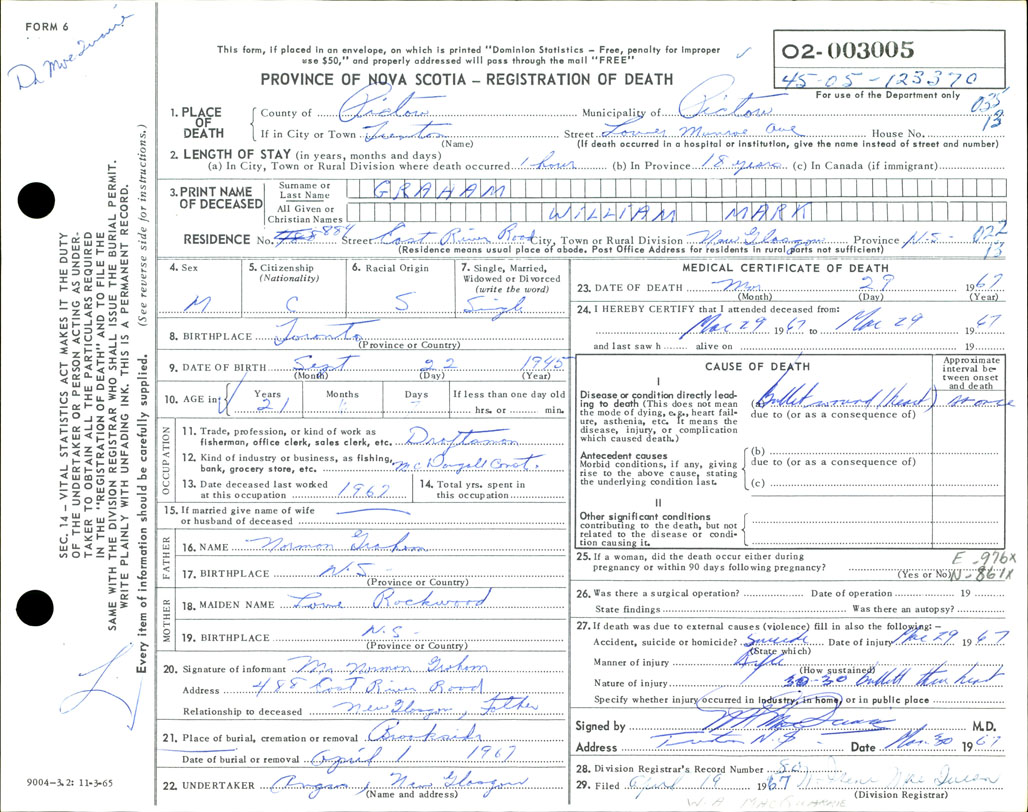 FORM 6
This form, if placed in an envelope, on which is printed "Dominion Statistics – Free, penalty for improper
use $50," and properly addressed will pass through the mail "FREE"
PROVINCE OF NOVA SCOTIA – REGISTRATION OF DEATH
02-003005
45-05-123370
For use of the Department only
1. PLACE OF DEATH
County of Pictou Municipality of Pictou
If in City or Town Trenton Street Lower Munroe Ave House No.
(Name) (If death occurred in a hospital or institution, give the name instead of street and number)
2. LENGTH OF STAY (in years, months and days)
(a) In City, Town or Rural Division where death occurred 1 hour (b) In Province 18 years (c) In Canada (if immigrant)
3. PRINT NAME OF DECEASED
Surname or Last Name GRAHAM
All Given or Christian Names WILLIAM MARK
RESIDENCE No. 488 Street East River Road City, Town or Rural Division New Glasgow Province N.S.
(Residence means usual place of abode. Post Office Address for residents in rural parts not sufficient)
4. Sex M
5. Citizenship (Nationality) C
6. Racial Origin S
7. Single, Married, Widowed or Divorced (write the word) Single
8. BIRTHPLACE Toronto
(Province or Country)
9. DATE OF BIRTH Sept 22 1945
(Month) (Day) (Year)
10. AGE in Years 21 Months Days If less than one day old
hrs. or min.
OCCUPATION
11. Trade, profession, or kind of work as
fisherman, office clerk, sales clerk, etc. Draftsman
12. Kind of industry or business, as fishing,
bank, grocery store, etc. McDougall Const.
13. Date deceased last worked at this occupation 1967
14. Total yrs. spent in this occupation
15. If married give name of wife
or husband of deceased
FATHER
16. NAME Norman Graham
17. BIRTHPLACE N.S.
(Province or Country)
MOTHER
18. MAIDEN NAME Rockwood
19. BIRTHPLACE N.S.
(Province or Country)
20. Signature of informant Mr. Norman Graham
Address 488 East River Road
Relationship to deceased New Glasgow, Father
21. Place of burial, cremation or removal Brookside
Date of burial or removal April 1 1967
22. UNDERTAKER New Glasgow
(Name and address)
MEDICAL CERTIFICATE OF DEATH
23. DATE OF DEATH Mar 29 1967
(Month) (Day) (Year)
24. I HEREBY CERTIFY that I attended deceased from:
Mar 29 1967 to Mar 29 1967
and last saw h alive on 19
CAUSE OF DEATH
Approximate interval between onset and death
I
Disease or condition directly leading to death (This does not mean the mode of dying, e.g., heart failure, asthenia, etc. It means the disease, injury, or complication which caused death.)
(a) Bullet wound (heart)
due to (or as a consequence of)
Antecedent causes
Morbid conditions, if any, giving rise to the above cause, stating the underlying condition last.
(b)
due to (or as a consequence of)
(c)
II
Other significant conditions
contributing to the death, but not related to the disease or condition causing it.
25. If a woman, did the death occur either during
pregnancy or within 90 days following pregnancy?
(Yes or No)
E-976X
N-861X
26. Was there a surgical operation? Date of operation 19
State findings Was there an autopsy?
27. If death was due to external causes (violence) fill in also the following: –
Accident, suicide or homicide? Suicide Date of injury Mar 29 1967
(State which)
Manner of injury Rifle
(How sustained)
Nature of injury 30-30 bullet thru heart
Specify whether injury occurred in industry, in home, or in public place
Signed by M.D.
Address Trenton N.S. Date Mar. 30 1967
28. Division Registrar's Record Number
29. Filed April 19 1967
(Division Registrar)
SEC. 14 – VITAL STATISTICS ACT MAKES IT THE DUTY
OF THE UNDERTAKER OR PERSON ACTING AS UNDER-
TAKER TO OBTAIN ALL THE PARTICULARS REQUIRED
IN THE "REGISTRATION OF DEATH" AND TO FILE THE
SAME WITH THE DIVISION REGISTRAR WHO SHALL ISSUE THE BURIAL PERMIT.
WRITE PLAINLY WITH UNFADING INK. THIS IS A PERMANENT RECORD.
Every item of information should be carefully supplied. (See reverse side for instructions.)
9004-3.2: 11-3-65